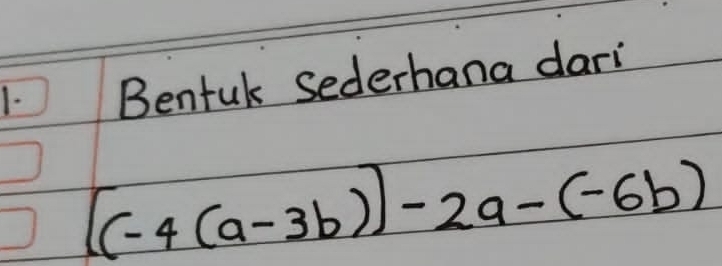 1. Bentuk sederhana dari
[(-4(a-3b)]-2a-(-6b)